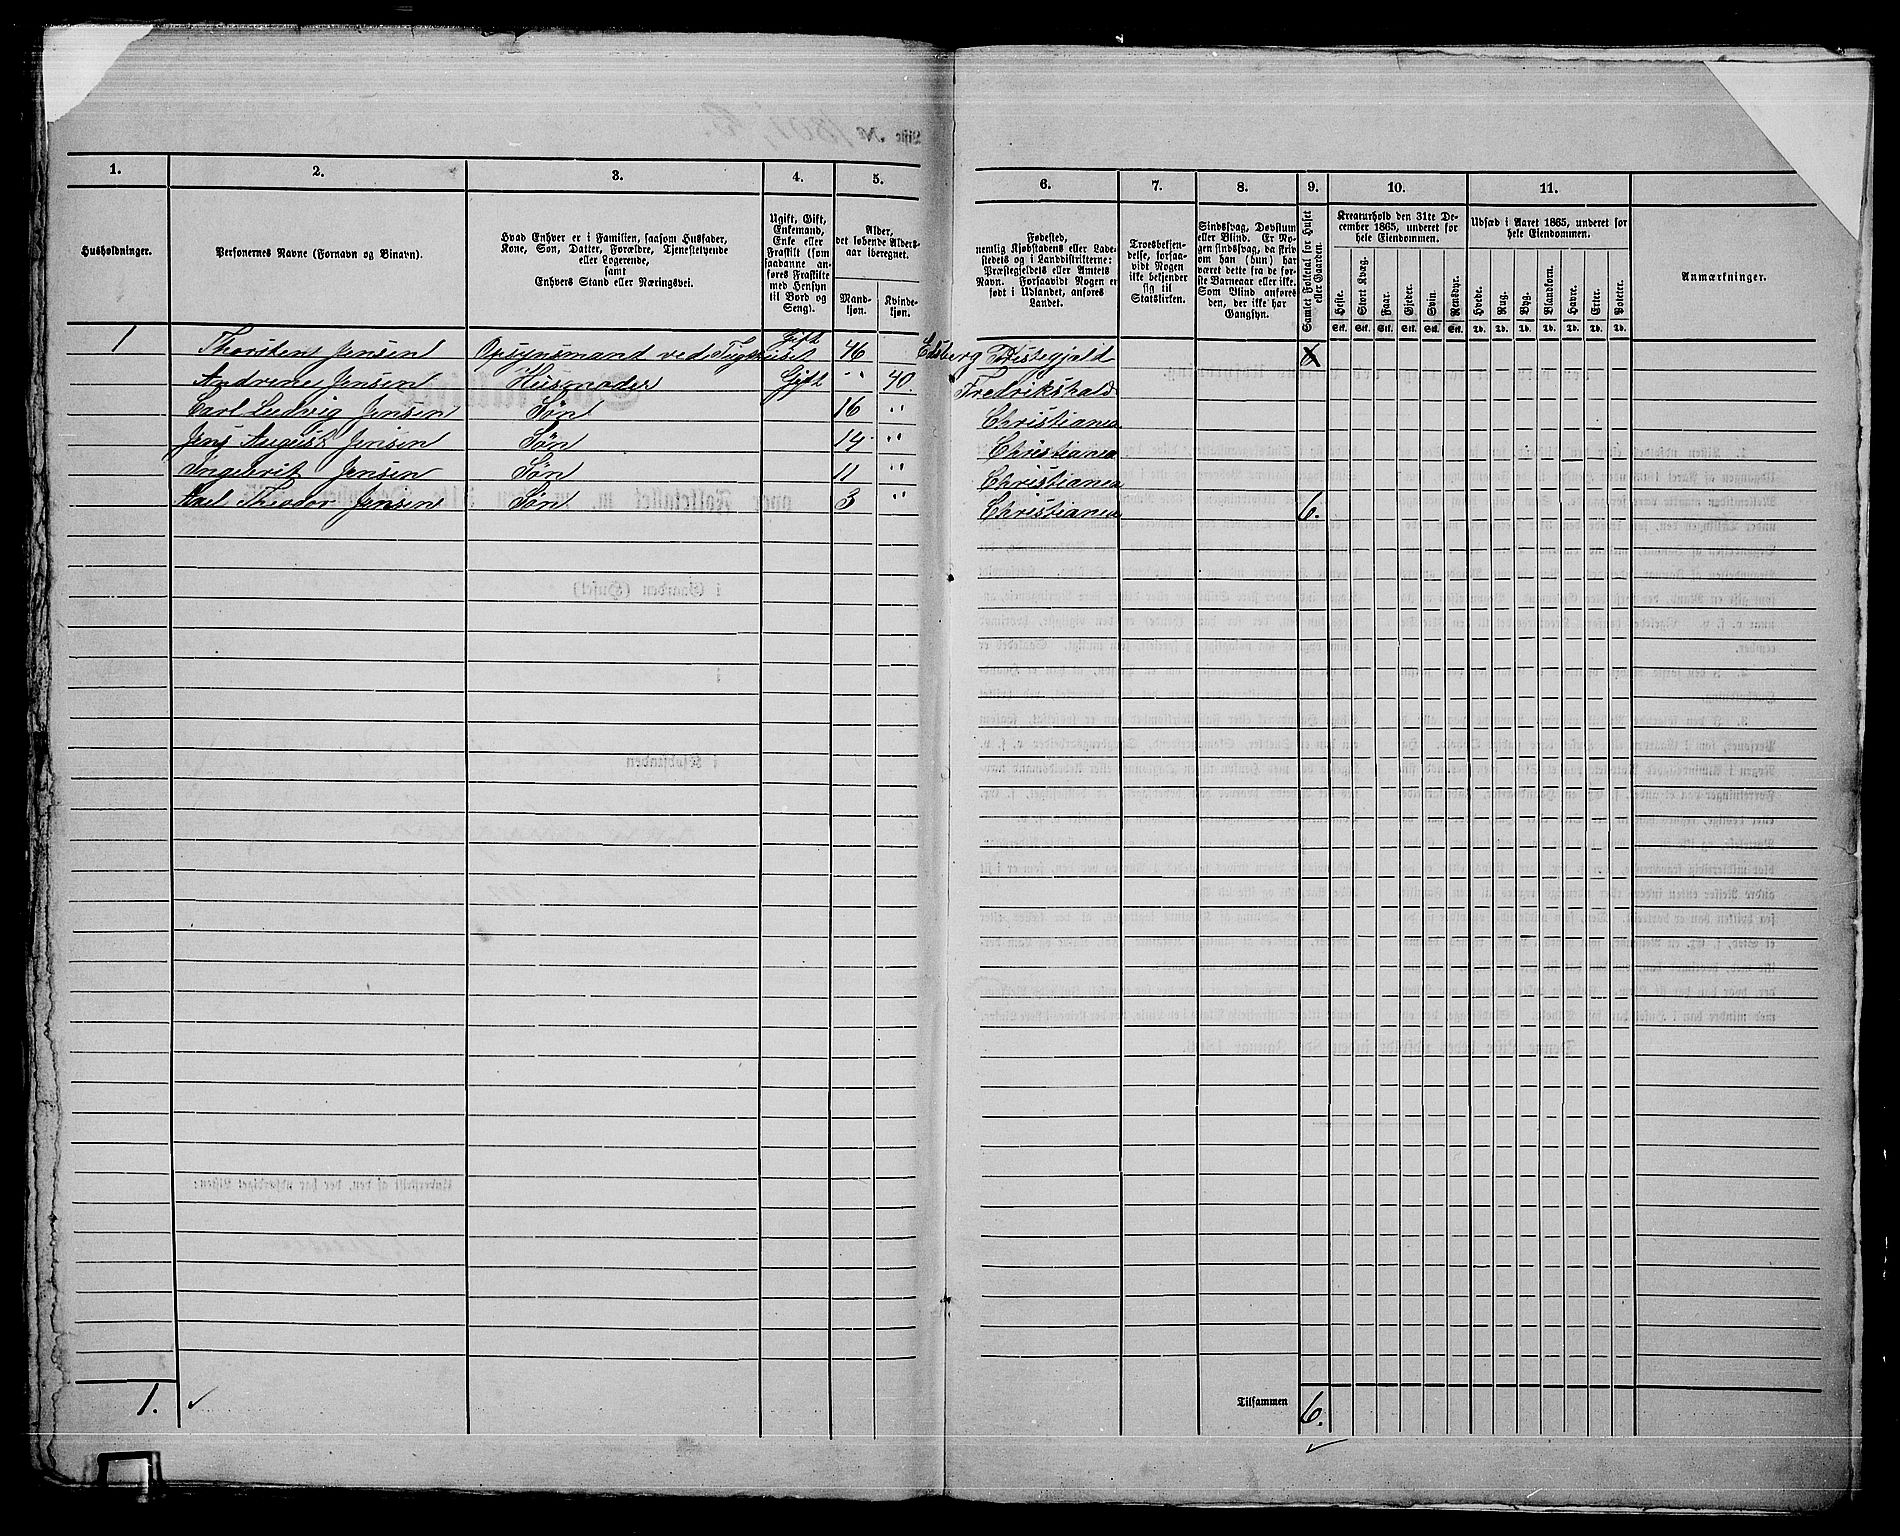 1. 2. 3. 4. 5. 6. 7. 8. 9. 10. 11.
Husholdninger.
Personernes Navne (Fornavn og Binavn).
Hvad Enhver er i Familien, saasom Husfader,
Kone, Søn, Datter, Forældre, Tjenestetyende
eller Logerende,
samt
Enhvers Stand eller Næringsvei.
Ugift, Gift,
Enkemand,
Enke eller
Fraskilt (som
saadanne an-
føres Fraskilte
med Hensyn
til Bord og
Seng).
Alder,
det løbende Alders-
aar iberegnet.
Mand-
kjøn.
Kvinde-
kjøn.
Fødested,
nemlig Kjøbstadens eller Lade-
stedets og i Landdistrikterne:
Præstegjeldets eller Amtets
Navn. Forsaavidt Nogen er
født i Udlandet, anføres
Landet.
Troesbekjen-
delse, forsaa-
vidt Nogen
ikke bekjender
sig til
Statskirken.
Sindssvag, Døvstum
eller Blind. Er No-
gen sindssvag, da skriv
om han (hun) har
været dette fra de før-
ste Barneaar eller ikke.
Som Blind anføres
den, der ikke har
Gangsyn.
Samlet Folketal for Huset
eller Gaarden.
Kreaturhold den 31te De-
cember 1865, underet for
hele Eiendommen.
Heste. Stort Kvæg. Faar. Gjeder. Svin. Rensdyr.
Stk. Stk. Stk. Stk. Stk. Stk.
Udsæd i Aaret 1865, underet for
hele Eiendommen.
Hvede. Rug. Byg. Blandkorn. Havre. Erter. Poteter.
Td. Td. Td. Td. Td. Td. Td.
Anmærkninger.
1 Thorsten Jensen Opsynsmand ved Tugthuset Gift 46 Edsberg 6
Andrine Jensen Husmoder Gift " 40. Fredrikshald
Carl Ludvig Jensen Søn 16 " Christiania
Jens August Jensen Søn 14 " Christiania
Ingebrit Jensen Søn 11 " Christiania
Axel Theodor Jensen Søn 3 " Christiania 6.
1. ✓ Tilsammen 6.
✓